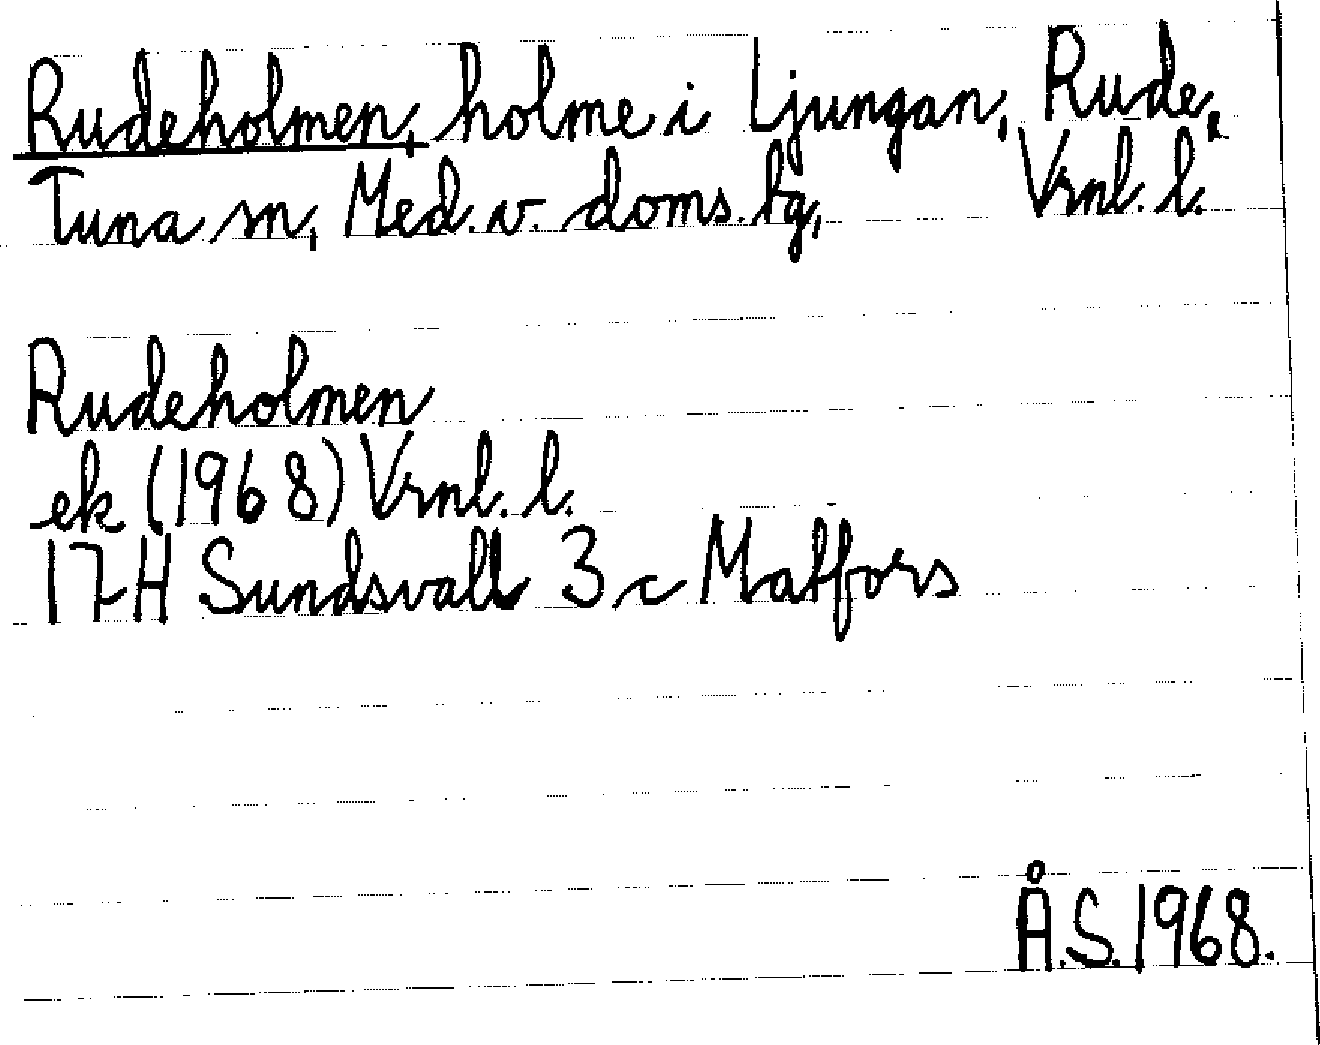 Rudeholmen, holme i Ljungan, Rude,
Tuna sn, Med. v. doms. lg, Vrnl. l.
Rudeholmen
ek (1968) Vrnl. l.
17H Sundsvall 3 c Matfors
Å.S. 1968.